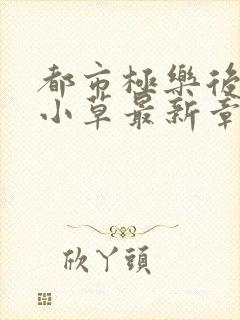 都市極樂後
小草最新章
欣丫頭